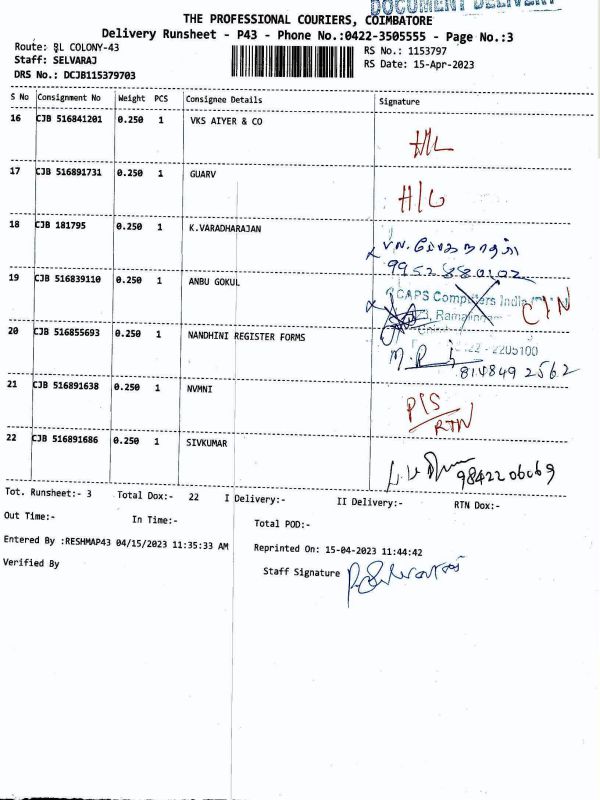 DOCUMENT DELIVERY
THE PROFESSIONAL COURIERS, COIMBATORE
Delivery Runsheet - P43 - Phone No.:0422-3505555 - Page No.:3
Route: BL COLONY-43
RS No.: 1153797
Staff: SELVARAJ
RS Date: 15-Apr-2023
DRS No.: DCJB115379703
S No Consignment No Weight PCS Consignee Details Signature
16 CJB 516841201 0.250 1 VKS AIYER & CO
H/L
17 CJB 516891731 0.250 1 GUARV
H/L
18 CJB 181795 0.250 1 K.VARADHARAJAN
9952880102
19 CJB 516839110 0.250 1 ANBU GOKUL
CAPS Computers India
CIN
20 CJB 516855693 0.250 1 NANDHINI REGISTER FORMS
2205100
8148492562
21 CJB 516891638 0.250 1 NVMNI
P/S
RTN
22 CJB 516891686 0.250 1 SIVKUMAR
9842206069
Tot. Runsheet:- 3 Total Dox:- 22 I Delivery:- II Delivery:- RTN Dox:-
Out Time:- In Time:- Total POD:-
Entered By :RESHMAP43 04/15/2023 11:35:33 AM Reprinted On: 15-04-2023 11:44:42
Verified By Staff Signature